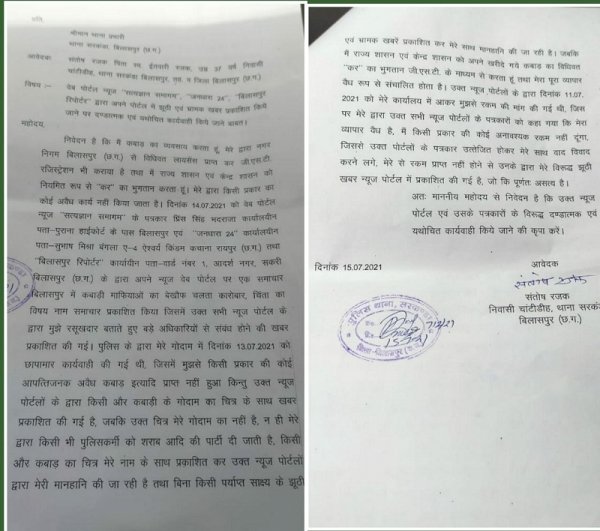 प्रति,
श्रीमान थाना प्रभारी
थाना सरकंडा, बिलासपुर (छ.ग.)
आवेदक: संतोष रजक पिता स्व. ईतवारी रजक, उम्र 37 वर्ष निवासी
चांटीडीह, थाना सरकंडा बिलासपुर, तह. व जिला बिलासपुर (छ.ग.)
विषय :- वेब पोर्टल न्यूज "सत्यज्ञान समागम", "जनधारा 24", "बिलासपुर
रिपोर्टर" द्वारा अपने पोर्टल में झूठी एवं भ्रामक खबर प्रकाशित किये
जाने पर दण्डात्मक एवं यथोचित कार्यवाही किये जाने बाबत।
महोदय,
निवेदन है कि मैं कबाड़ का व्यवसाय करता हूं, मेरे द्वारा नगर
निगम बिलासपुर (छ.ग.) से विधिवत लायसेंस प्राप्त कर जी.एस.टी.
रजिस्ट्रेशन भी कराया है तथा मैं राज्य शासन एवं केन्द्र शासन को
नियमित रूप से "कर" का भुगतान करता हूं। मेरे द्वारा किसी प्रकार का
कोई अवैध कार्य नहीं किया जाता है। दिनांक 14.07.2021 को वेब पोर्टल
न्यूज "सत्यज्ञान समागम" के पत्रकार प्रिंस सिंह मदराजा कार्यालयीन
पता-पुराना हाईकोर्ट के पास बिलासपुर एवं "जनधारा 24" कार्यालयीन
पता-सुभाष मिश्रा बंगला ए-4 ऐश्वर्य किंडम कचाना रायपुर (छ.ग.) तथा
"बिलासपुर रिपोर्टर" कार्यालयीन पता-वार्ड नम्बर 1, आदर्श नगर, सकरी
बिलासपुर (छ.ग.) के द्वारा अपने न्यूज वेब पोर्टल पर एक समाचार
बिलासपुर में कबाड़ी माफियाओं का बेखौफ चलता कारोबार, चिंता का
विषय नाम समाचार प्रकाशित किया जिसमें उक्त सभी न्यूज पोर्टल के
द्वारा मुझे रसूखदार बताते हुए बड़े अधिकारियों से संबंध होने की खबर
प्रकाशित की गई। पुलिस के द्वारा मेरे गोदाम में दिनांक 13.07.2021 को
छापामार कार्यवाही की गई थी, जिसमें मुझसे किसी प्रकार की कोई
आपत्तिजनक अवैध कबाड़ इत्यादि प्राप्त नहीं हुआ किन्तु उक्त न्यूज
पोर्टलों के द्वारा किसी और कबाड़ी के गोदाम का चित्र के साथ खबर
प्रकाशित की गई है, जबकि उक्त चित्र मेरे गोदाम का नहीं है, न ही मेरे
द्वारा किसी भी पुलिसकर्मी को शराब आदि की पार्टी दी जाती है, किसी
और कबाड़ का चित्र मेरे नाम के साथ प्रकाशित कर उक्त न्यूज पोर्टलों
द्वारा मेरी मानहानि की जा रही है तथा बिना किसी पर्याप्त साक्ष्य के झूठी
एवं भ्रामक खबरें प्रकाशित कर मेरे साथ मानहानि की जा रही है। जबकि
में राज्य शासन एवं केन्द्र शासन को अपने खरीदे गये कबाड़ का विधिवत
"कर" का भुगतान जी.एस.टी. के माध्यम से करता हूं तथा मेरा पूरा व्यापार
वैध रूप से संचालित होता है। उक्त वेब पोर्टलों के द्वारा दिनांक 11.07.
2021 को मेरे कार्यालय में आकर मुझसे रकम की मांग की गई थी, जिस
पर मेरे द्वारा उक्त सभी न्यूज पोर्टलों के पत्रकारों को कहा गया कि मेरा
व्यापार वैध है, मैं किसी प्रकार की कोई अनावश्यक रकम नहीं दूंगा,
जिससे उक्त पोर्टलों के पत्रकार उत्तेजित होकर मेरे साथ वाद विवाद
करने लगे. मेरे से रकम प्राप्त नहीं होने से उनके द्वारा मेरे विरूद्ध झूठी
खबर न्यूज पोर्टल में प्रकाशित की गई है, जो कि पूर्णतः असत्य है।
अतः माननीय महोदय से निवेदन है कि उक्त न्यूज
पोर्टल एवं उसके पत्रकारों के विरूद्ध दण्डात्मक एवं
यथोचित कार्यवाही किये जाने की कृपा करें।
दिनांक 15.07.2021
आवेदक
संतोष रजक
संतोष रजक
निवासी चांटीडीह, थाना सरकंडा
बिलासपुर (छ.ग.)
पुलिस थाना, सरकण्डा
जिला-बिलासपुर (छ.ग.)